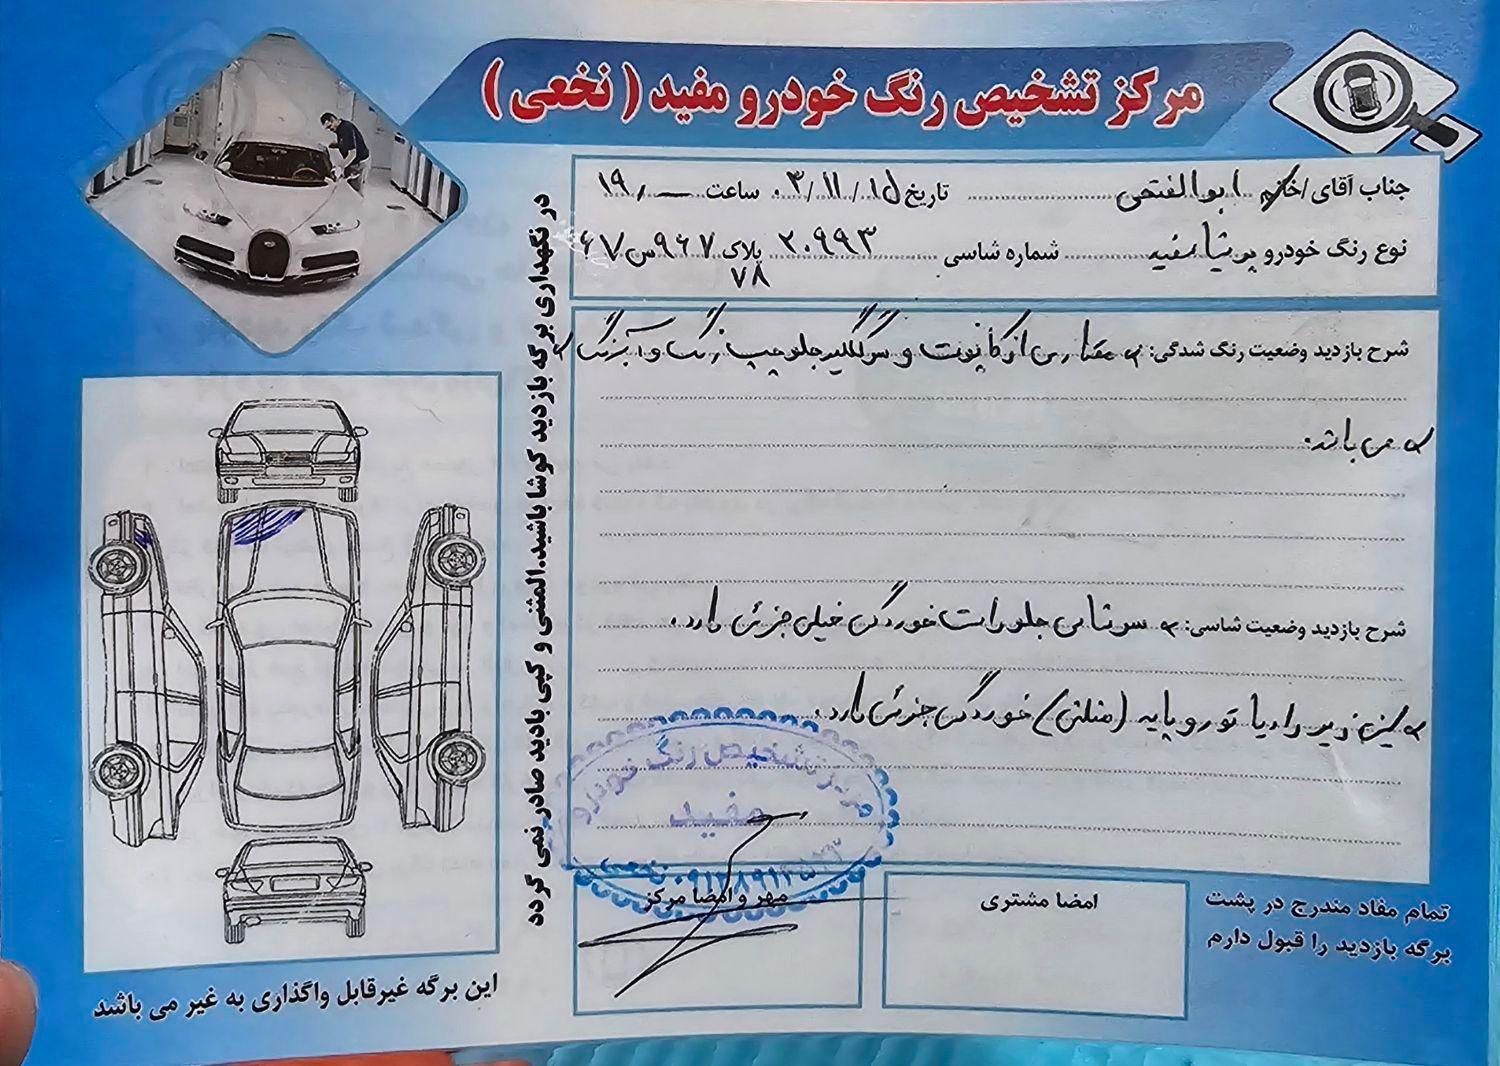 مرکز تشخیص رنگ خودرو مفید ( نخعی )
جناب آقای /خانم ابوالفتحی تاریخ ۰۳/۱۱/۱۵ ساعت ۱۹
نوع رنگ خودرو پرشیا سفید شماره شاسی ۲۰۹۹۳ پلاک ۹۶۷س۶۷
۷۸
شرح بازدید وضعیت رنگ شدگی: مقداری از کاپوت و گلگیر جلو چپ رنگ و
می باشد.
شرح بازدید وضعیت شاسی: سرشاسی جلو راست خوردگی خیلی جزئی دارد.
سینی زیر رادیاتور و پایه (مثلثی) خوردگی جزئی دارد.
مرکز تشخیص رنگ خودرو
مفید
مهر و امضا مرکز
امضا مشتری
تمام مفاد مندرج در پشت
برگه بازدید را قبول دارم
در نگهداری برگه بازدید کوشا باشید.المثنی و کپی بادید صادر نمی گردد
این برگه غیرقابل واگذاری به غیر می باشد